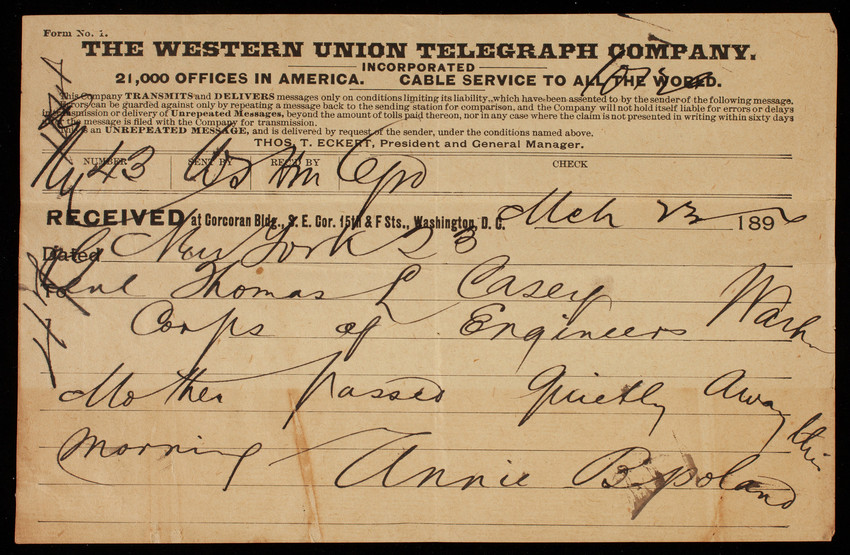 Form No. 1.
THE WESTERN UNION TELEGRAPH COMPANY.
INCORPORATED
21,000 OFFICES IN AMERICA. CABLE SERVICE TO ALL THE WORLD.
This Company TRANSMITS and DELIVERS messages only on conditions limiting its liability, which have been assented to by the sender of the following message.
Errors can be guarded against only by repeating a message back to the sending station for comparison, and the Company will not hold itself liable for errors or delays
in transmission or delivery of Unrepeated Messages, beyond the amount of tolls paid thereon, nor in any case where the claim is not presented in writing within sixty days
after the message is filed with the Company for transmission.
This is an UNREPEATED MESSAGE, and is delivered by request of the sender, under the conditions named above.
THOS. T. ECKERT, President and General Manager.
NUMBER SENT BY REC'D BY CHECK
43
RECEIVED at Corcoran Bldg., S. E. Cor. 15th & F Sts., Washington, D. C. Mch 23 189
Dated New York 23
To Genl Thomas L Casey
Corps of Engineers Washn
Mother passed quietly away this
morning Annie B Poland